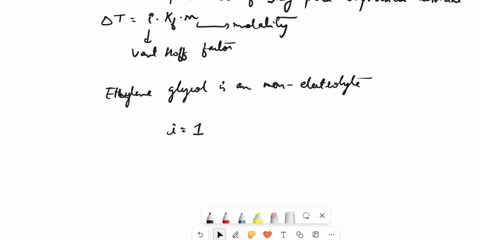 ΔT = i · Kf · m → molality
↓
vant Hoff factor
Ethylene glycol is an non-electrolyte
i = 1